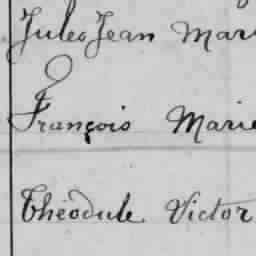 Jules Jean Mari
François Marie
Théodule Victor